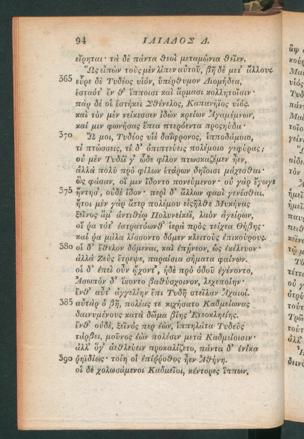 94 ΙΛΙΑΔΟΣ Δ.
εἴρηται· τὰ δὲ πάντα θεοὶ μεταμώνια θεῖεν.
Ὣς εἰπὼν τοὺς μὲν λίπεν αὐτοῦ, βῆ δὲ μετ' ἄλλους.
365 εὗρε δὲ Τυδέος υἱόν, ὑπέρθυμον Διομήδεα,
ἑσταότ' ἔν θ' ἵπποισι καὶ ἅρμασι κολλητοῖσιν·
πὰρ δέ οἱ ἑστήκει Σθένελος, Καπανήϊος υἱός.
καὶ τὸν μὲν νείκεσσεν ἰδὼν κρείων Ἀγαμέμνων,
καί μιν φωνήσας ἔπεα πτερόεντα προςηύδα·
370 Ὤ μοι, Τυδέος υἱὲ δαΐφρονος, ἱπποδάμοιο,
τί πτώσσεις, τί δ' ὀπιπτεύεις πολέμοιο γεφύρας;
οὐ μὲν Τυδέϊ γ' ὧδε φίλον πτωσκαζέμεν ἦεν,
ἀλλὰ πολὺ πρὸ φίλων ἑτάρων δηΐοισι μάχεσθαι·
ὡς φάσαν, οἵ μιν ἴδοντο πονεύμενον· οὐ γὰρ ἔγωγε
375 ἤντησ', οὐδὲ ἴδον· περὶ δ' ἄλλων φασὶ γενέσθαι.
ἤτοι μὲν γὰρ ἄτερ πολέμου εἰςῆλθε Μυκήνας
ξεῖνος ἅμ' ἀντιθέῳ Πολυνείκεϊ, λαὸν ἀγείρων,
οἵ ῥα τότ' ἐστρατόωνθ' ἱερὰ πρὸς τείχεα Θήβης·
καί ῥα μάλα λίσσοντο δόμεν κλειτοὺς ἐπικούρους.
380 οἱ δ' ἔθελον δόμεναι, καὶ ἐπῄνεον, ὡς ἐκέλευον·
ἀλλὰ Ζεὺς ἔτρεψε, παραίσια σήματα φαίνων.
οἱ δ' ἐπεὶ οὖν ᾤχοντ', ἠδὲ πρὸ ὁδοῦ ἐγένοντο,
Ἀσωπὸν δ' ἵκοντο βαθύσχοινον, λεχεποίην·
ἔνθ' αὖτ' ἀγγελίην ἐπὶ Τυδῆ στεῖλαν Ἀχαιοί.
385 αὐτὰρ ὁ βῆ, πολέας τε κιχήσατο Καδμείωνας
δαινυμένους κατὰ δῶμα βίης Ἐτεοκληείης.
ἔνθ' οὐδέ, ξεῖνός περ ἐών, ἱππηλάτα Τυδεὺς
τάρβει, μοῦνος ἐὼν πολέσιν μετὰ Καδμείοισιν·
ἀλλ' ὅγ' ἀεθλεύειν προκαλίζετο, πάντα δ' ἐνίκα
390 ῥηϊδίως· τοίη οἱ ἐπίῤῥοθος ἦεν Ἀθήνη.
οἱ δὲ χολωσάμενοι Καδμεῖοι, κέντορες ἵππων,